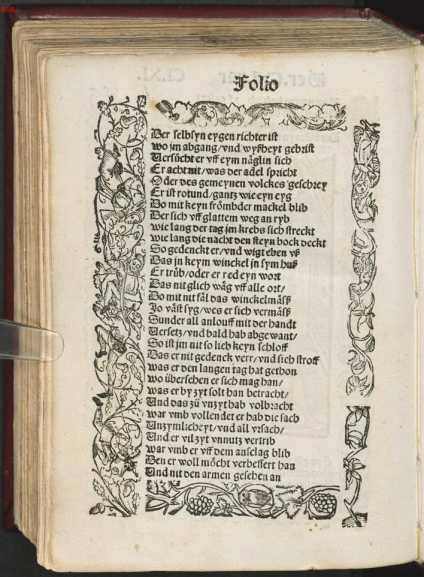 Folio
Der selbsyn eygen richter ist
wo jm abgang/vnd wyßheyt gebrist
Versůcht er vff eym näglin sich
Er acht nit/was der adel spricht
Oder des gemeynen volckes geschrey
Er ist rotund/gantz wie eyn eyg
Do mit keyn frömbder mackel blib
Der sich vff glattem weg an ryb
wie lang der tag jm krebs sich streckt
wie lang die nacht den steyn bock deckt
So gedenckt er/vnd wigt eben vß
Das jn keym winckel jn sym huß
Er trüb/oder er red eyn wort
Das nit glich wäg vff alle ort/
Do mit nit fäl das winckelmäß
Jo väst syg/wes er sich vermäß
Sunder all anlouff mit der handt
Versetz/vnd bald hab abgewant/
So ist jm nit so lieb keyn schloff
Das er nit gedenck verr/vnd sich stroff
was er den langen tag hat gethon
wo übersehen er sich mag han/
was er by zyt solt han betracht/
Vnd das zů vnzyt hab volbracht
war vmb vollendet er hab die sach
Vnzymlicheyt/vnd all vrsach/
Vnd er vil zyt vnnutz vertrib
war vmb er vff dem anschlag blib
Den er woll möcht verbessert han
Vnd nit den armen gesehen an